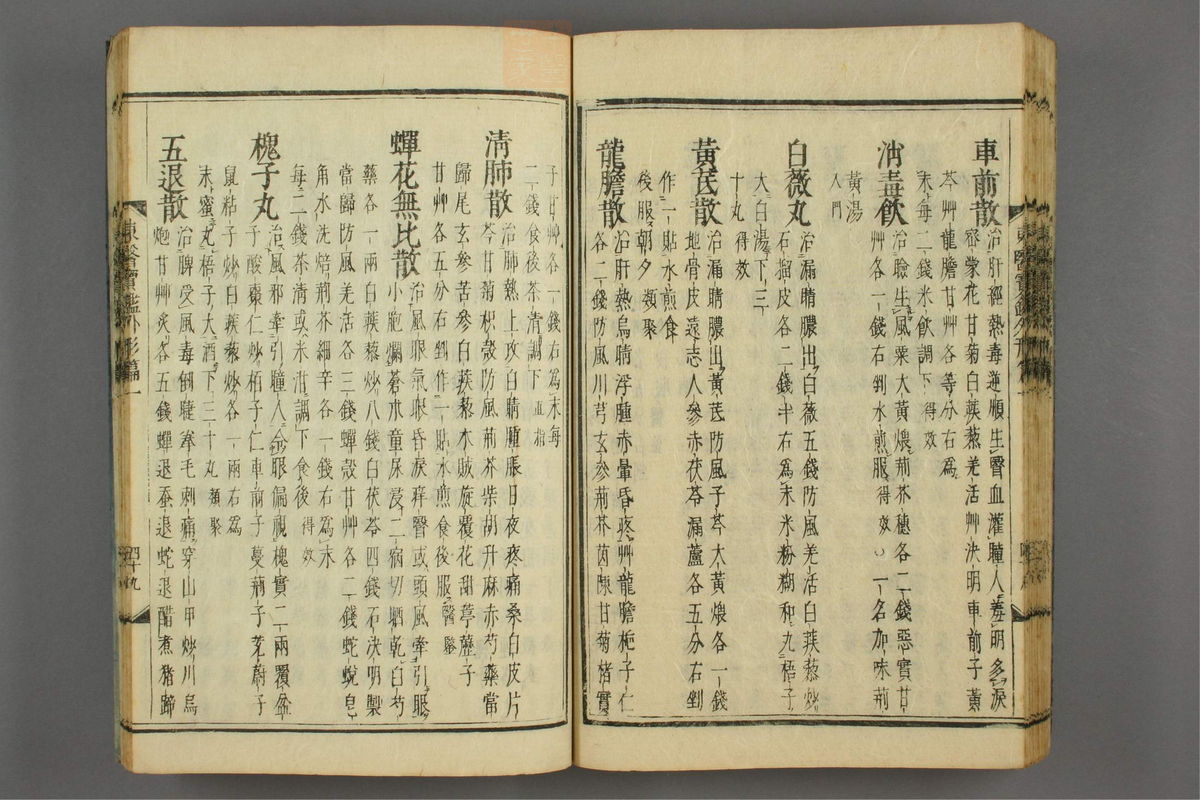 車前散 治肝經熱毒逆順生瞖血灌瞳人羞明多淚
密蒙花甘菊白蒺藜羌活艸決明車前子黃
芩艸龍膽甘艸各等分右爲
末每二錢米飮調下 得效
消毒飮 治瞼生風粟大黃煨荊芥穗各二錢惡實甘
艸各一錢右剉水煎服 得效 一名加味荊
黃湯
入門
白薇丸 治漏睛膿出白薇五錢防風羌活白蒺藜炒
石榴皮各二錢半右爲末米粉糊和丸梧子
大白湯下三
十丸 得效
黃芪散 治漏睛膿出黃芪防風子芩大黃煨各一錢
地骨皮遠志人參赤茯苓漏蘆各五分右剉
作一貼水煎食
後服朝夕 類聚
龍膽散 治肝熱烏睛浮腫赤暈昏疼艸龍膽梔子仁
各二錢防風川芎玄參荊芥茵陳甘菊楮實
東醫寶鑑外形篇一
子甘艸各一錢右爲末每
二錢食後茶清調下 直指
淸肺散 治肺熱上攻白睛腫脹日夜疼痛桑白皮片
芩甘菊枳殼防風荊芥柴胡升麻赤芍藥當
歸尾玄參苦參白蒺藜木賊旋覆花甜葶藶子
甘艸各五分右剉作一貼水煎食後服 醫鑑
蟬花無比散 治風眼氣眼昏淚痒瞖或頭風牽引眼
小胞爛蒼朮童尿浸二宿切晒乾白芍
藥各一兩白蒺藜炒八錢白茯苓四錢石決明製
當歸防風羌活各三錢蟬殼甘艸各二錢蛇蛻皂
角水洗焙荊芥細辛各一錢右爲末
每二錢茶淸或米泔調下食後 得效
槐子丸 治風邪牽引瞳人令眼偏視槐實二兩覆盆
子酸棗仁炒栢子仁車前子蔓荊子茺蔚子
鼠粘子炒白蒺藜炒各一兩右爲
末蜜丸梧子大酒下三十丸 類聚
五退散 治脾受風毒倒睫拳毛刺痛穿山甲炒川烏
炮甘艸炙各五錢蟬退蚕退蛇退醋煮猪蹄
東醫寶鑑外形篇一 四十九